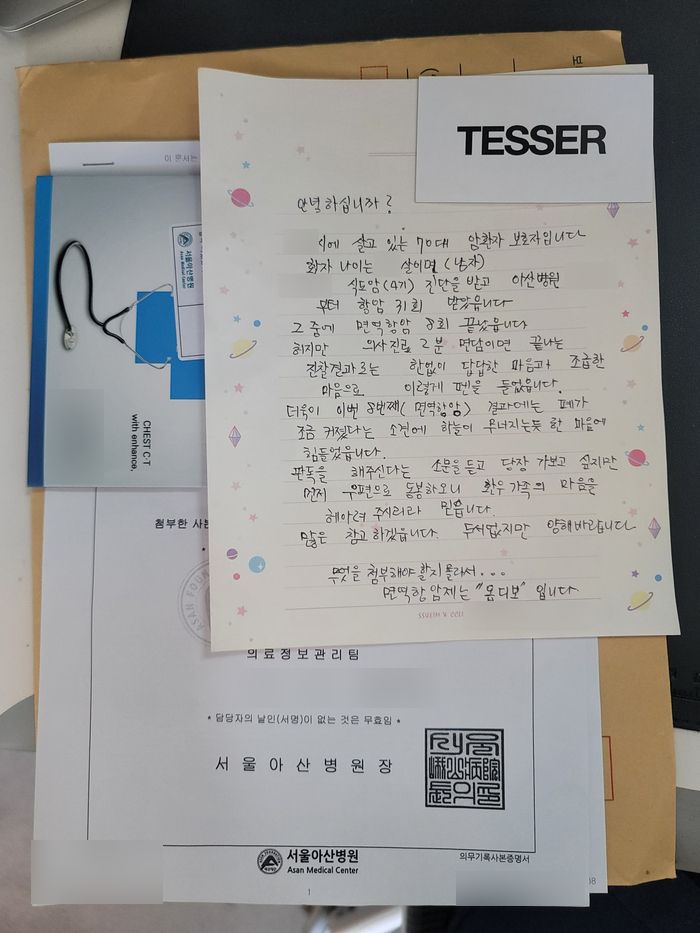 TESSER
이 문서는
안녕하십니까?
에 살고 있는 70대 암환자 보호자입니다
환자 나이는 살이며 (남자)
식도암(4기) 진단을 받고 아산병원
부터 항암 31회 받았읍니다
그 중에 면역항암 8회 끝났읍니다
허지만 의사진료 2분 면담이면 끝나는
진찰결과로는 한없이 답답한 마음과 조급한
마음으로 이렇게 펜을 들었읍니다.
더욱이 이번 8번째(면역항암) 결과에는 폐가
조금 커졌다는 소견에 하늘이 무너지는듯 한 마음에
힘들었읍니다.
판독을 해주신다는 소문을 듣고 당장 가보고 싶지만
먼저 우편으로 동봉하오니 환우 가족의 마음을
헤아려 주시리라 믿읍니다.
많은 참고 하겠읍니다. 두서없지만 양해바랍니다
무엇을 첨부해야 할지 몰라서...
면역항암제는 "옵디보" 입니다
서울아산병원
Asan Medical Center
CHEST C-T
with enhance,
첨부한 사본
ASAN FOUN
의료정보관리팀
* 담당자의 날인(서명)이 없는 것은 무효임 *
서울아산병원장
서울아산병원
Asan Medical Center
의무기록사본증명서
1